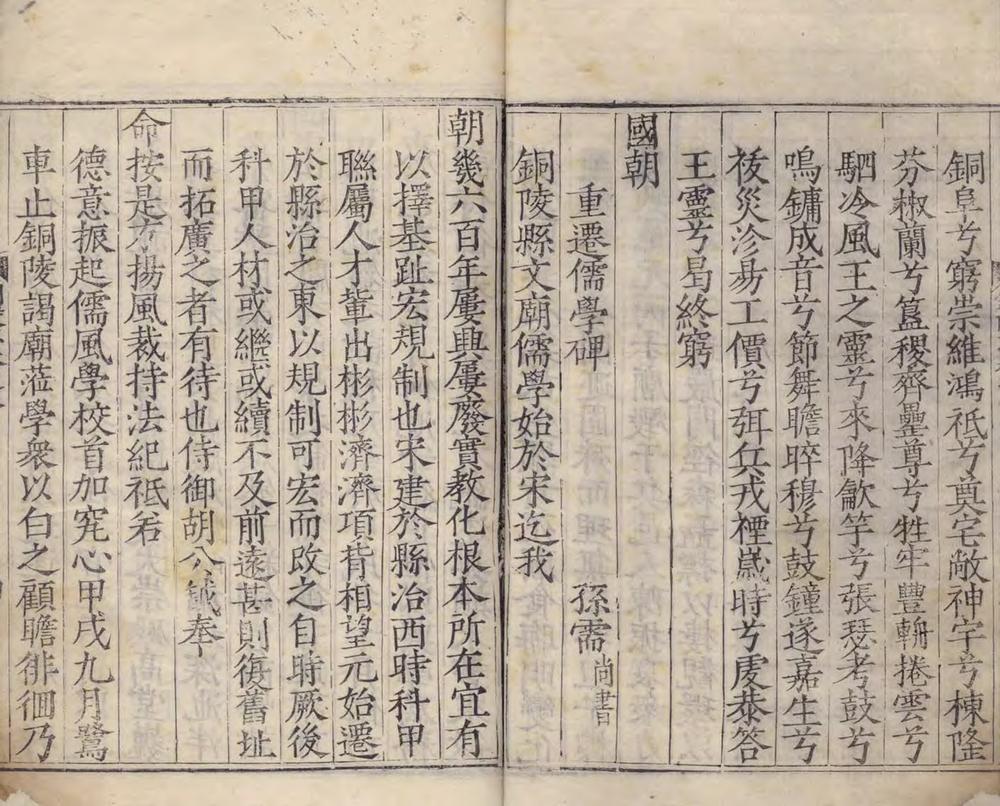 銅阜兮窮崇維鴻祇兮奠宅敞神宇兮棟隆
芬椒蘭兮簋稷齊罍尊兮牲牢豐輈捲雲兮
駟冷風王之靈兮來降龡竽兮張瑟考鼓兮
鳴鏞成音兮節舞瞻晬穆兮鼓鐘遂嘉生兮
祓災沴昜工價兮弭兵戎禋歲時兮虔恭答
王靈兮曷終窮
國朝
重遷儒學碑 孫需尚書
銅陵縣文廟儒學始於宋迄我
朝幾六百年屢興屢廢實教化根本所在宜有
以擇基趾宏規制也宋建於縣治西時科甲
聯屬人才輩出彬彬濟濟項背相望元始遷
於縣治之東以規制可宏而改之自時厥後
科甲人材或繼或續不及前遠甚則復舊址
而拓廣之者有待也侍御胡公鉞奉
命按是方揚風裁持法紀祇若
德意振起儒風學校首加究心甲戌九月鷖
車止銅陵謁廟蒞學衆以白之顧瞻徘徊乃